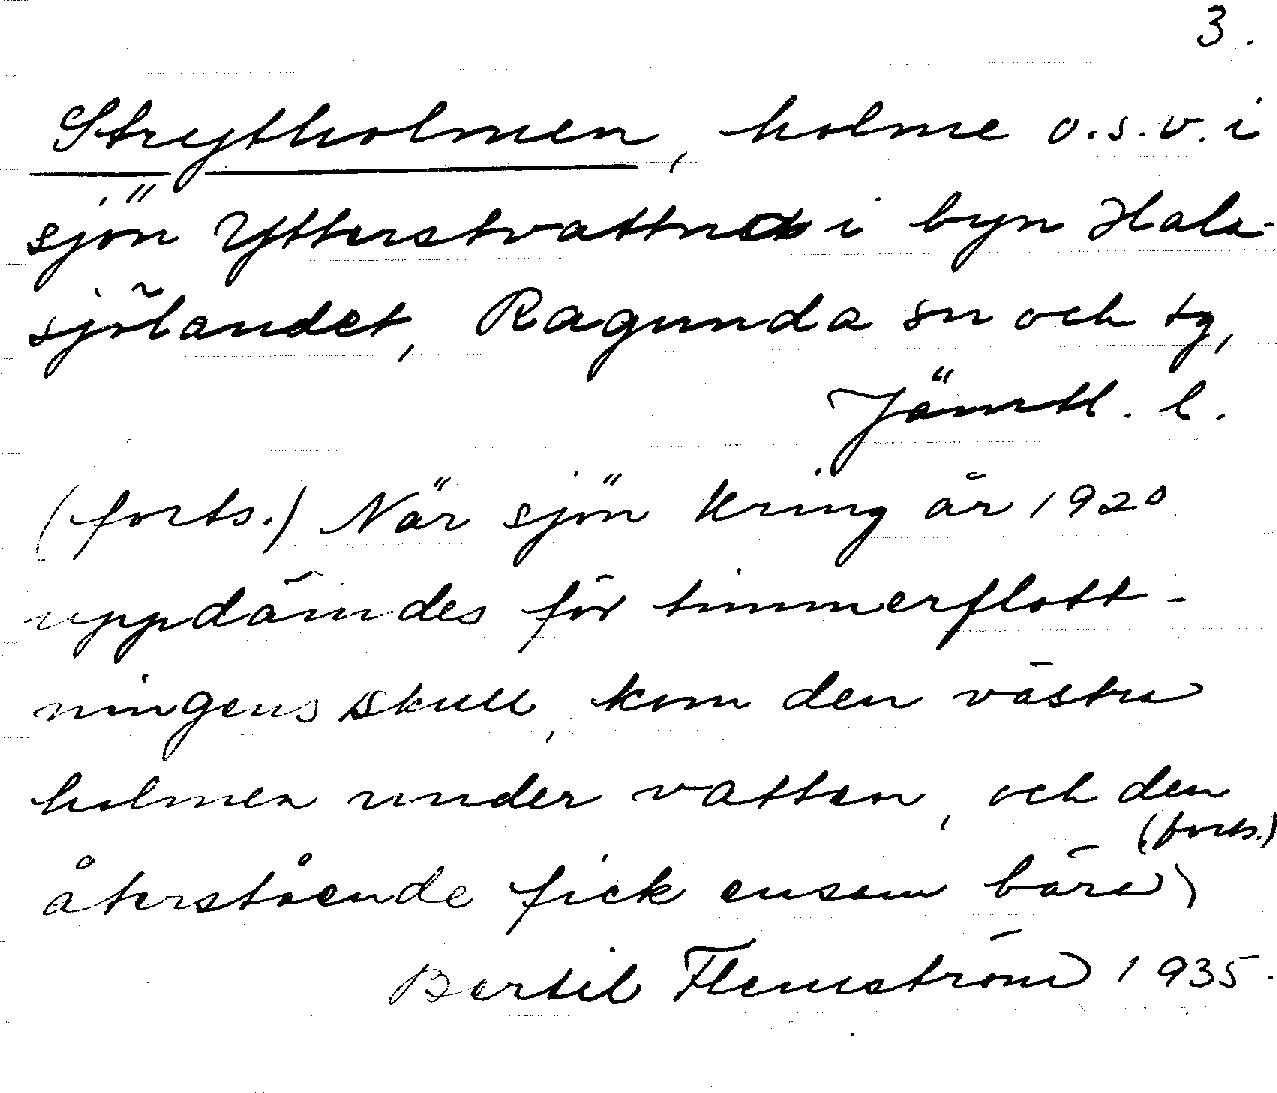 3.
Strytholmen, holme o.s.v. i
sjön Ytterstvattnet i byn Hala-
sjölandet, Ragunda sn och tg,
Jämtl. l.
(forts.) När sjön kring år 1920
uppdämdes för timmerflott-
ningens skull, kom den västra
holmen under vatten, och den
återstående fick ensam bära
(forts.)
Bertil Flemström 1935.